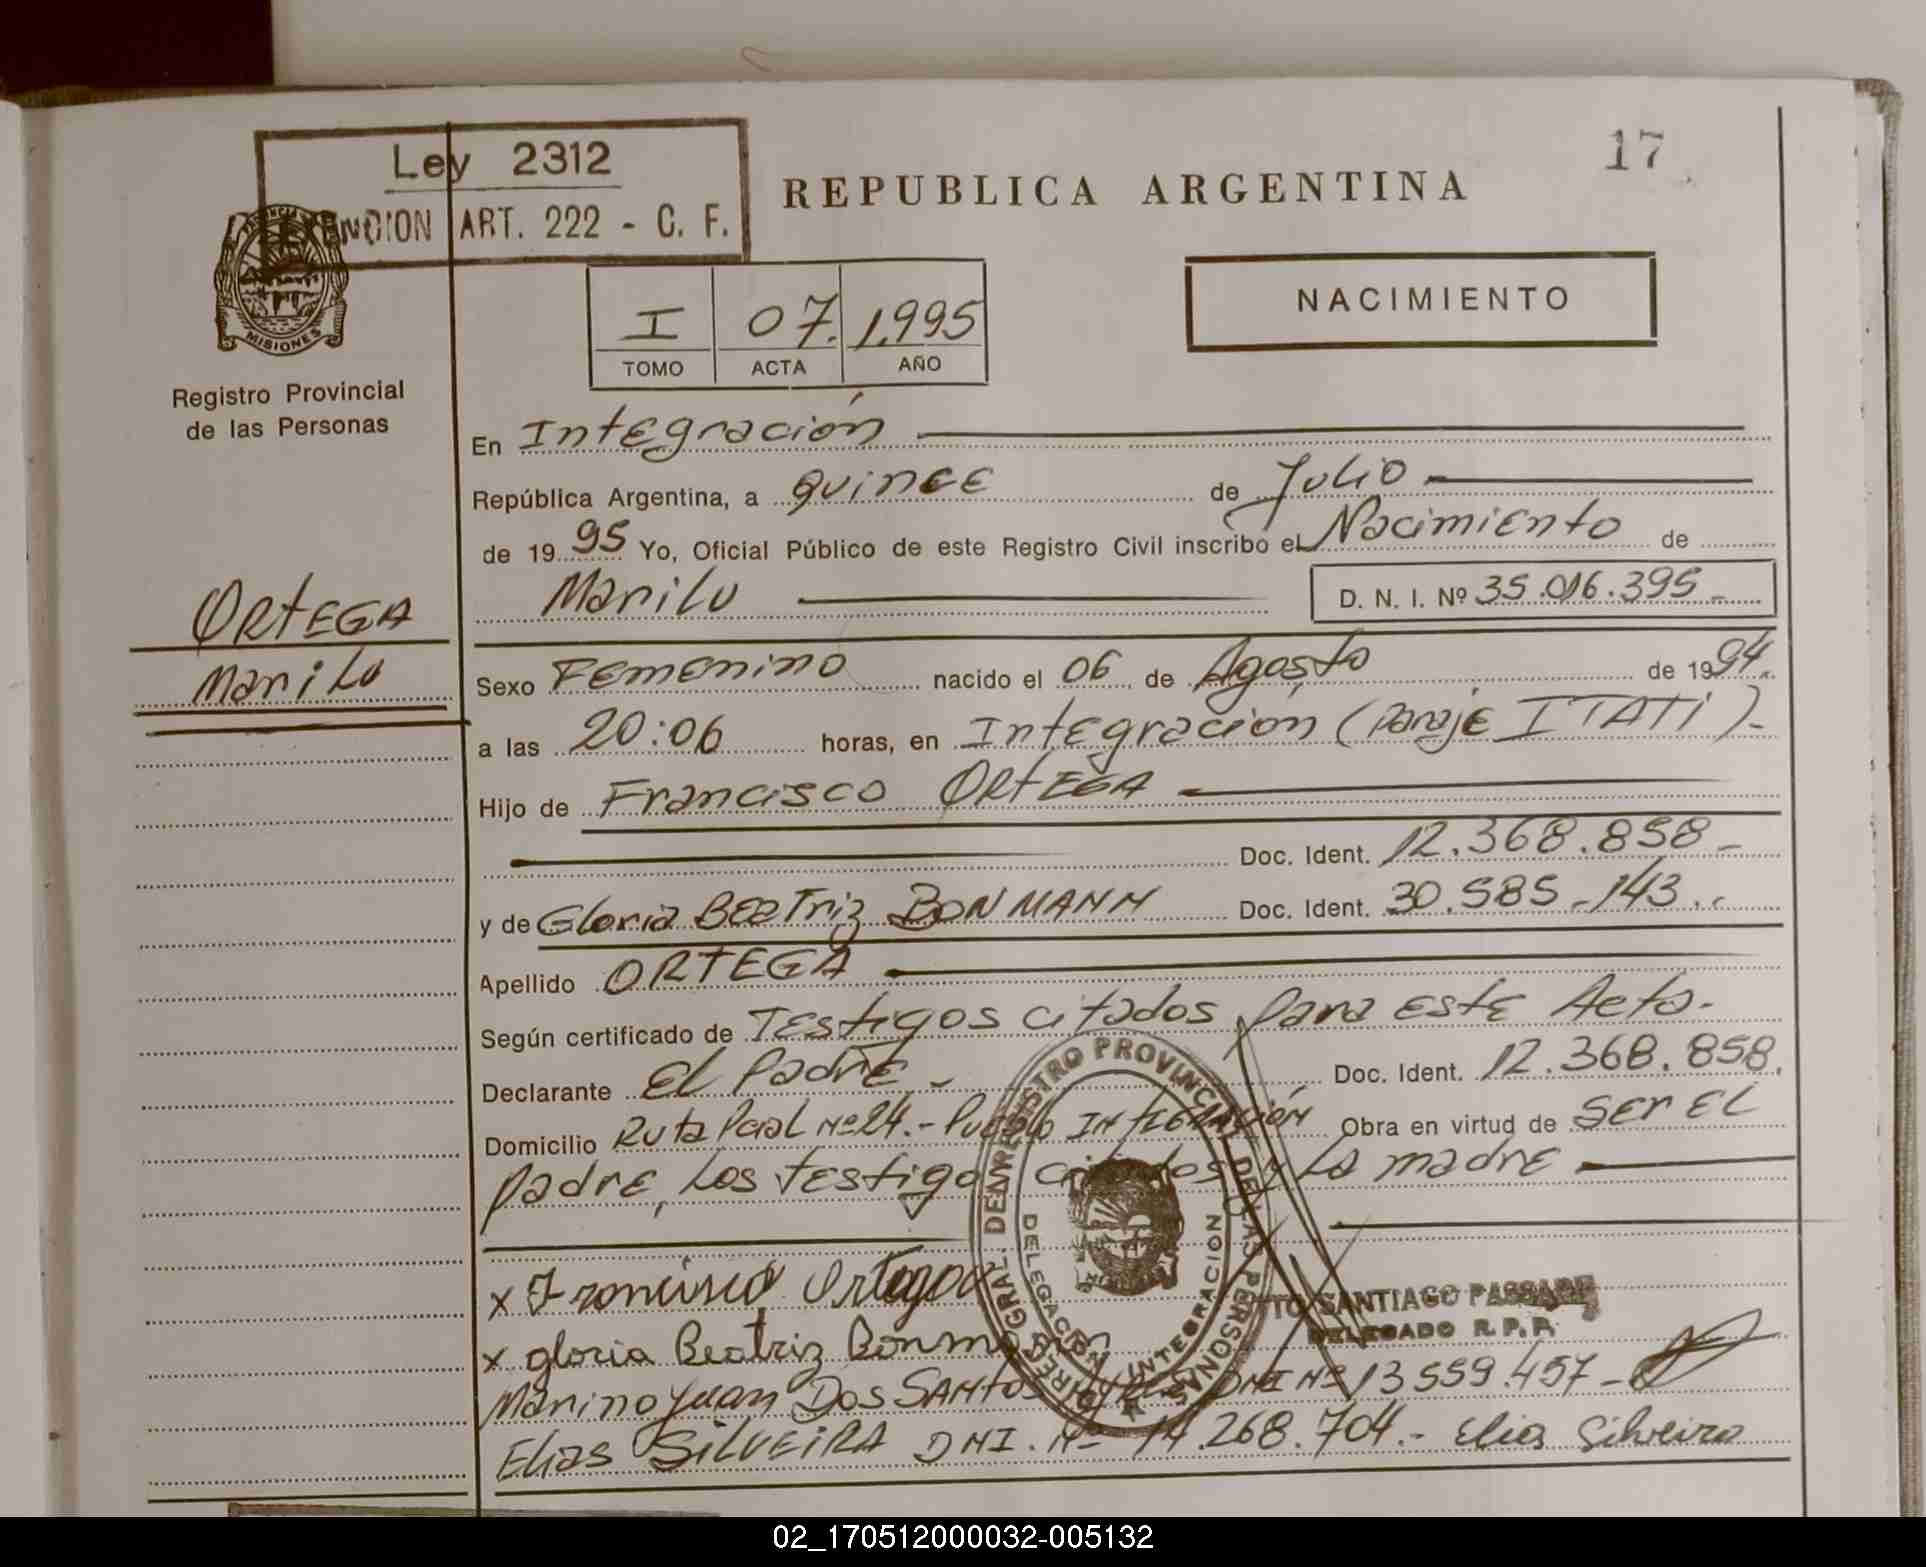 17
Ley 2312
ART. 222 - C. F.
REPUBLICA ARGENTINA
MISIONES
Registro Provincial
de las Personas
I 07. 1.995
TOMO ACTA AÑO
NACIMIENTO
En Integración
República Argentina, a quince de Julio
de 1995 Yo, Oficial Público de este Registro Civil inscribo el Nacimiento de
Marilu D. N. I. Nº 35.016.395
ORTEGA
Marilu
Sexo Femenino nacido el 06 de Agosto de 1994.
a las 20:06 horas, en Integración (Paraje ITATI)
Hijo de Francisco ORTEGA
Doc. Ident. 12.368.858
y de Gloria Beatriz BONMANN Doc. Ident. 30.585.143
Apellido ORTEGA
Según certificado de Testigos citados para este Acta.
Declarante El Padre Doc. Ident. 12.368.858.
Domicilio Ruta Pcial Nº 24.- Pueblo INTEGRACIÓN Obra en virtud de ser el
padre, los testigos citados y la madre
x Francisco Ortega
x gloria Beatriz Bonmann
REGISTRO PROVINCIAL DE LAS PERSONAS
DELEGACION INTEGRACION
SANTIAGO
DELEGADO R.P.P.
Marino Juan Dos SANTOS DNI Nº 13.559.457
Elias SILVEIRA DNI. Nº 14.268.704.- Elias Silveira
02_170512000032-005132